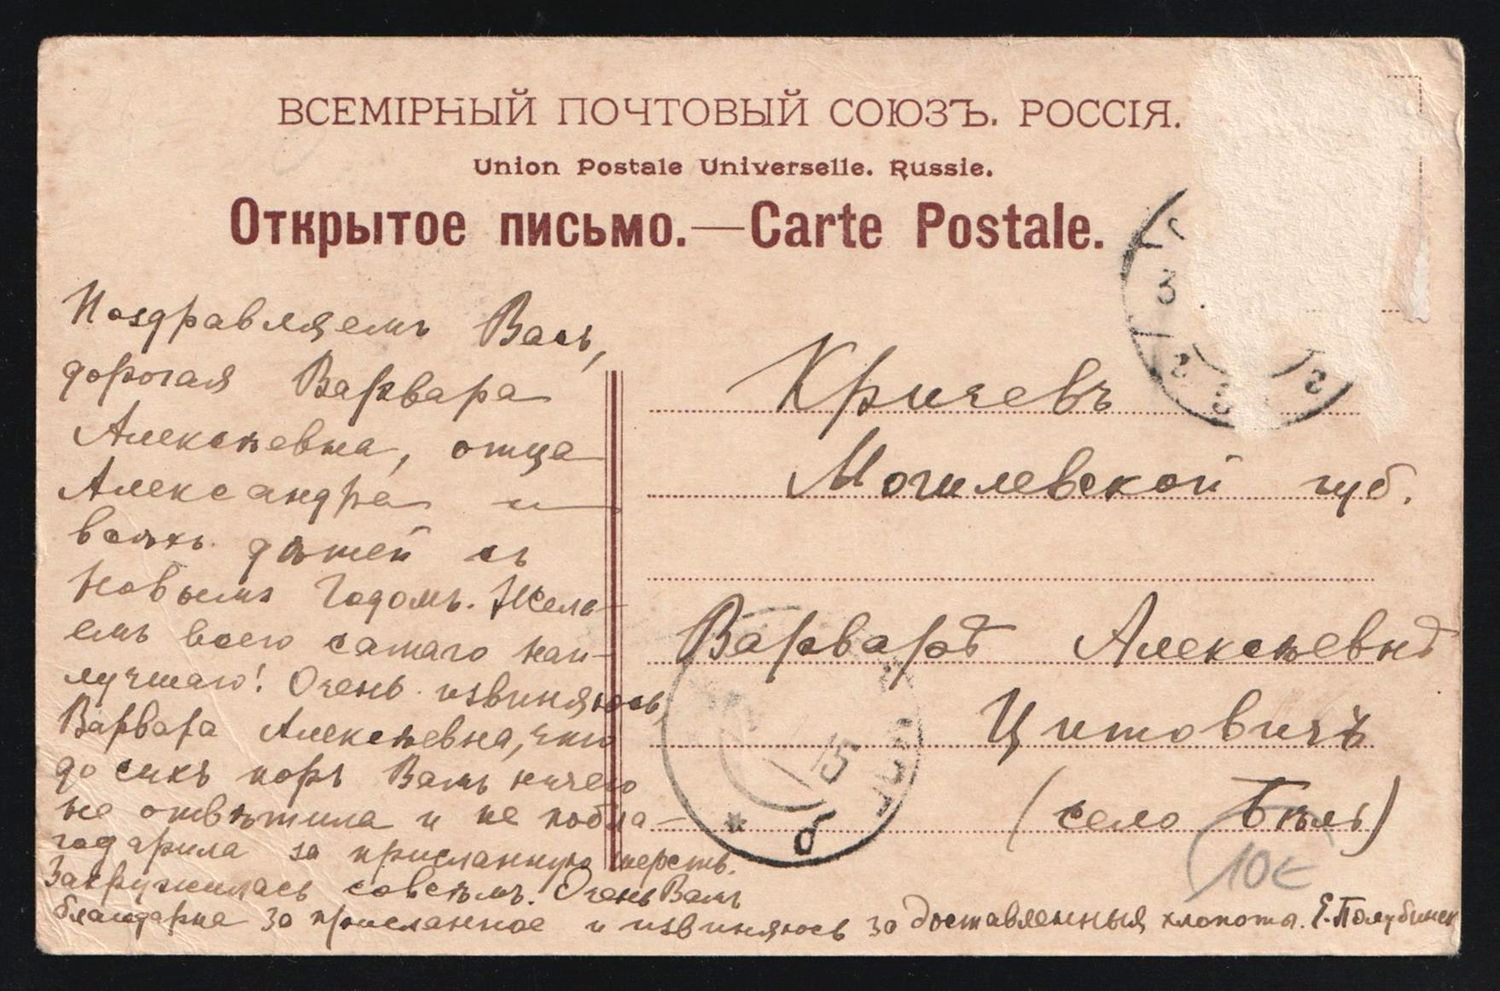 ВСЕМІРНЫЙ ПОЧТОВЫЙ СОЮЗЪ. РОССІЯ.
Union Postale Universelle. Russie.
Открытое письмо.—Carte Postale.
Поздравляемъ Васъ,
дорогая Варвара
Алексѣевна, отца
Александра и
всѣхъ дѣтей съ
Новымъ Годомъ. Жела-
емъ всего самаго наи-
лучшаго! Очень извиняюсь,
Варвара Алексѣевна, что
до сихъ поръ Вамъ ничего
не отвѣтила и не побла-
годарила за присланную шерсть.
Закружилась совсѣмъ. Очень Вамъ
благодарна за присланное и извиняюсь за доставленныя хлопоты. Е. Полубинск
Кричевъ
Могилевской губ.
Варварѣ Алексѣевнѣ
Цитовичъ
(село Бѣль)
10€
3
6